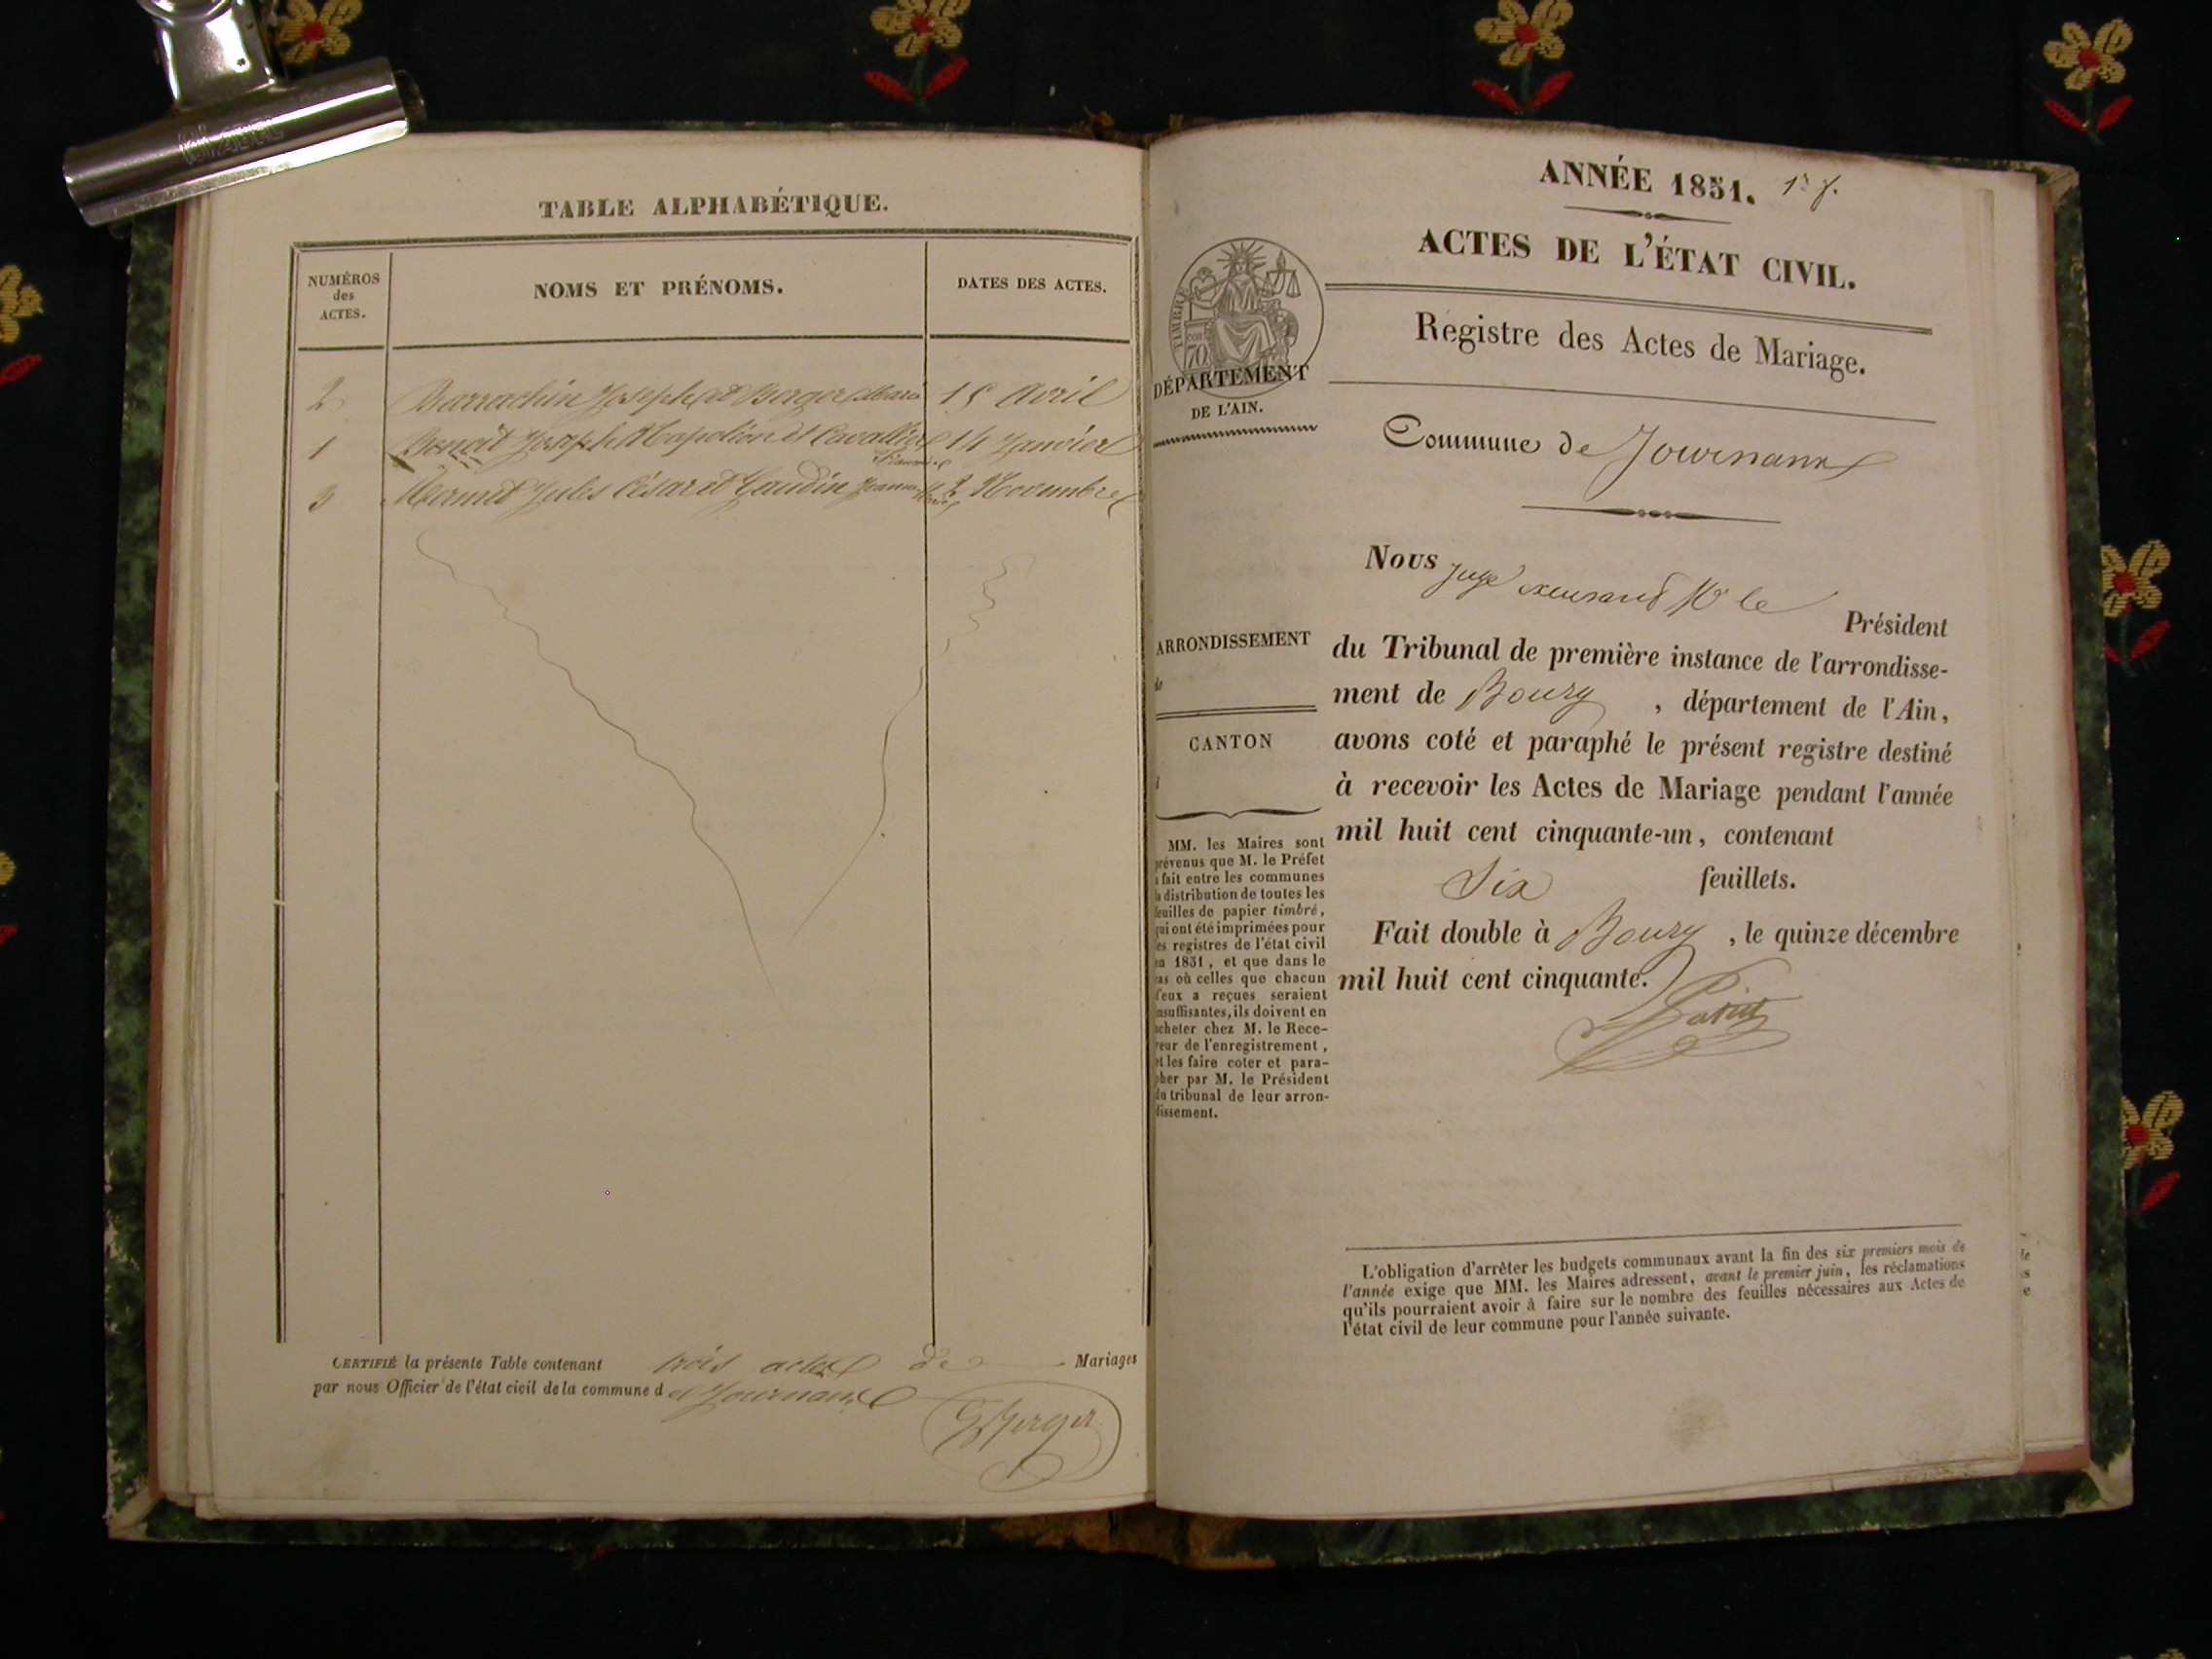 TABLE ALPHABÉTIQUE.
NUMÉROS
des
ACTES.
NOMS ET PRÉNOMS.
DATES DES ACTES.
2 Barrachin Joseph et Berger Marie 15 Avril
1 Benoit Joseph Napoléon et Cavallier 14 Janvier
3 Mermet Jules César et Gaudin Jeanne Marie 2 Novembre
CERTIFIÉ la présente Table contenant trois actes de Mariages
par nous Officier de l'état civil de la commune de Journans
Berger
ANNÉE 1851. 1er f.
ACTES DE L'ÉTAT CIVIL.
TIMBRE
70
DÉPARTEMENT
DE L'AIN.
Registre des Actes de Mariage.
Commune de Journans
Nous Juge excusant Mr le Président
du Tribunal de première instance de l'arrondisse-
ment de Bourg, département de l'Ain,
avons coté et paraphé le présent registre destiné
à recevoir les Actes de Mariage pendant l'année
mil huit cent cinquante-un, contenant
Six feuillets.
Fait double à Bourg, le quinze décembre
mil huit cent cinquante.
ARRONDISSEMENT
de
CANTON
MM. les Maires sont
prévenus que M. le Préfet
a fait entre les communes
la distribution de toutes les
feuilles de papier timbré,
qui ont été imprimées pour
les registres de l'état civil
en 1851, et que dans le
cas où celles que chacun
d'eux a reçues seraient
insuffisantes, ils doivent en
acheter chez M. le Rece-
veur de l'enregistrement,
et les faire coter et para-
pher par M. le Président
du tribunal de leur arron-
dissement.
L'obligation d'arrêter les budgets communaux avant la fin des six premiers mois de
l'année exige que MM. les Maires adressent, avant le premier juin, les réclamations
qu'ils pourraient avoir à faire sur le nombre des feuilles nécessaires aux Actes de
l'état civil de leur commune pour l'année suivante.